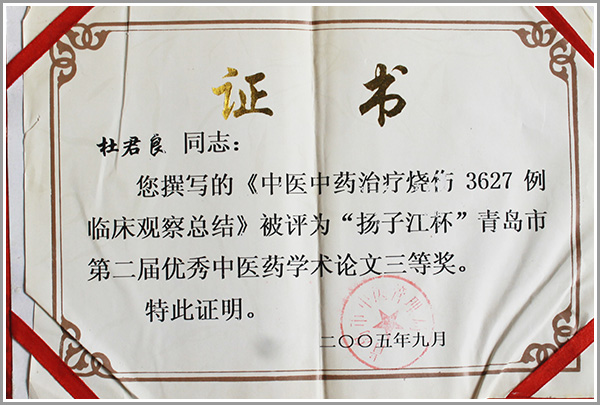 证 书
杜君良 同志：
您撰写的《中医中药治疗烧伤 3627 例
临床观察总结》被评为“扬子江杯”青岛市
第二届优秀中医药学术论文三等奖。
特此证明。
二〇〇五年九月